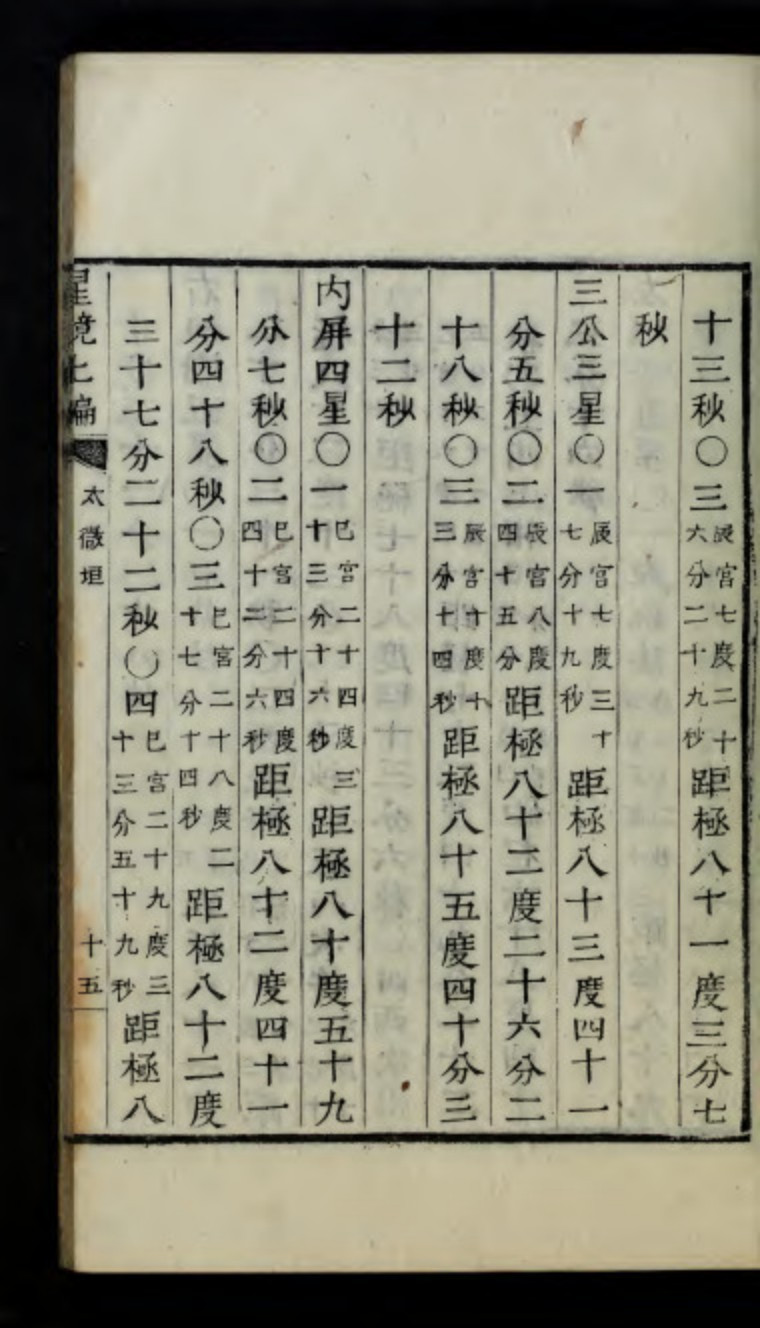 十三秒〇三辰宮七度二十六分二十九秒距極八十一度三分七
秒
三公三星〇一辰宮七度三十七分十九秒距極八十三度四十一
分五秒〇二辰宮八度四十五分距極八十二度二十六分二
十八秒〇三辰宮十度十三分十四秒距極八十五度四十分三
十二秒
内屏四星〇一巳宮二十四度三十三分十六秒距極八十度五十九
分七秒〇二巳宮二十四度四十二分六秒距極八十二度四十一
分四十八秒〇三巳宮二十八度二十七分十四秒距極八十二度
三十七分二十二秒〇四巳宮二十九度三十三分五十九秒距極八
星鏡上編 太微垣 十五